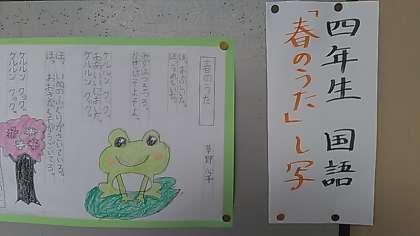 四年生 国語
「春のうた」し写
春のうた
草野 心平
ほっまぶしいな。
ほっうれしいな。
みずはつるつる。
かぜはそよそよ。
ケルルン クック。
ああいいにおいだ。
ケルルン クック。
ほっ、いぬのふぐりがさいている。
ほっ、おおきなくもがうごいてくる。
ケルルン クック。
ケルルン クック。